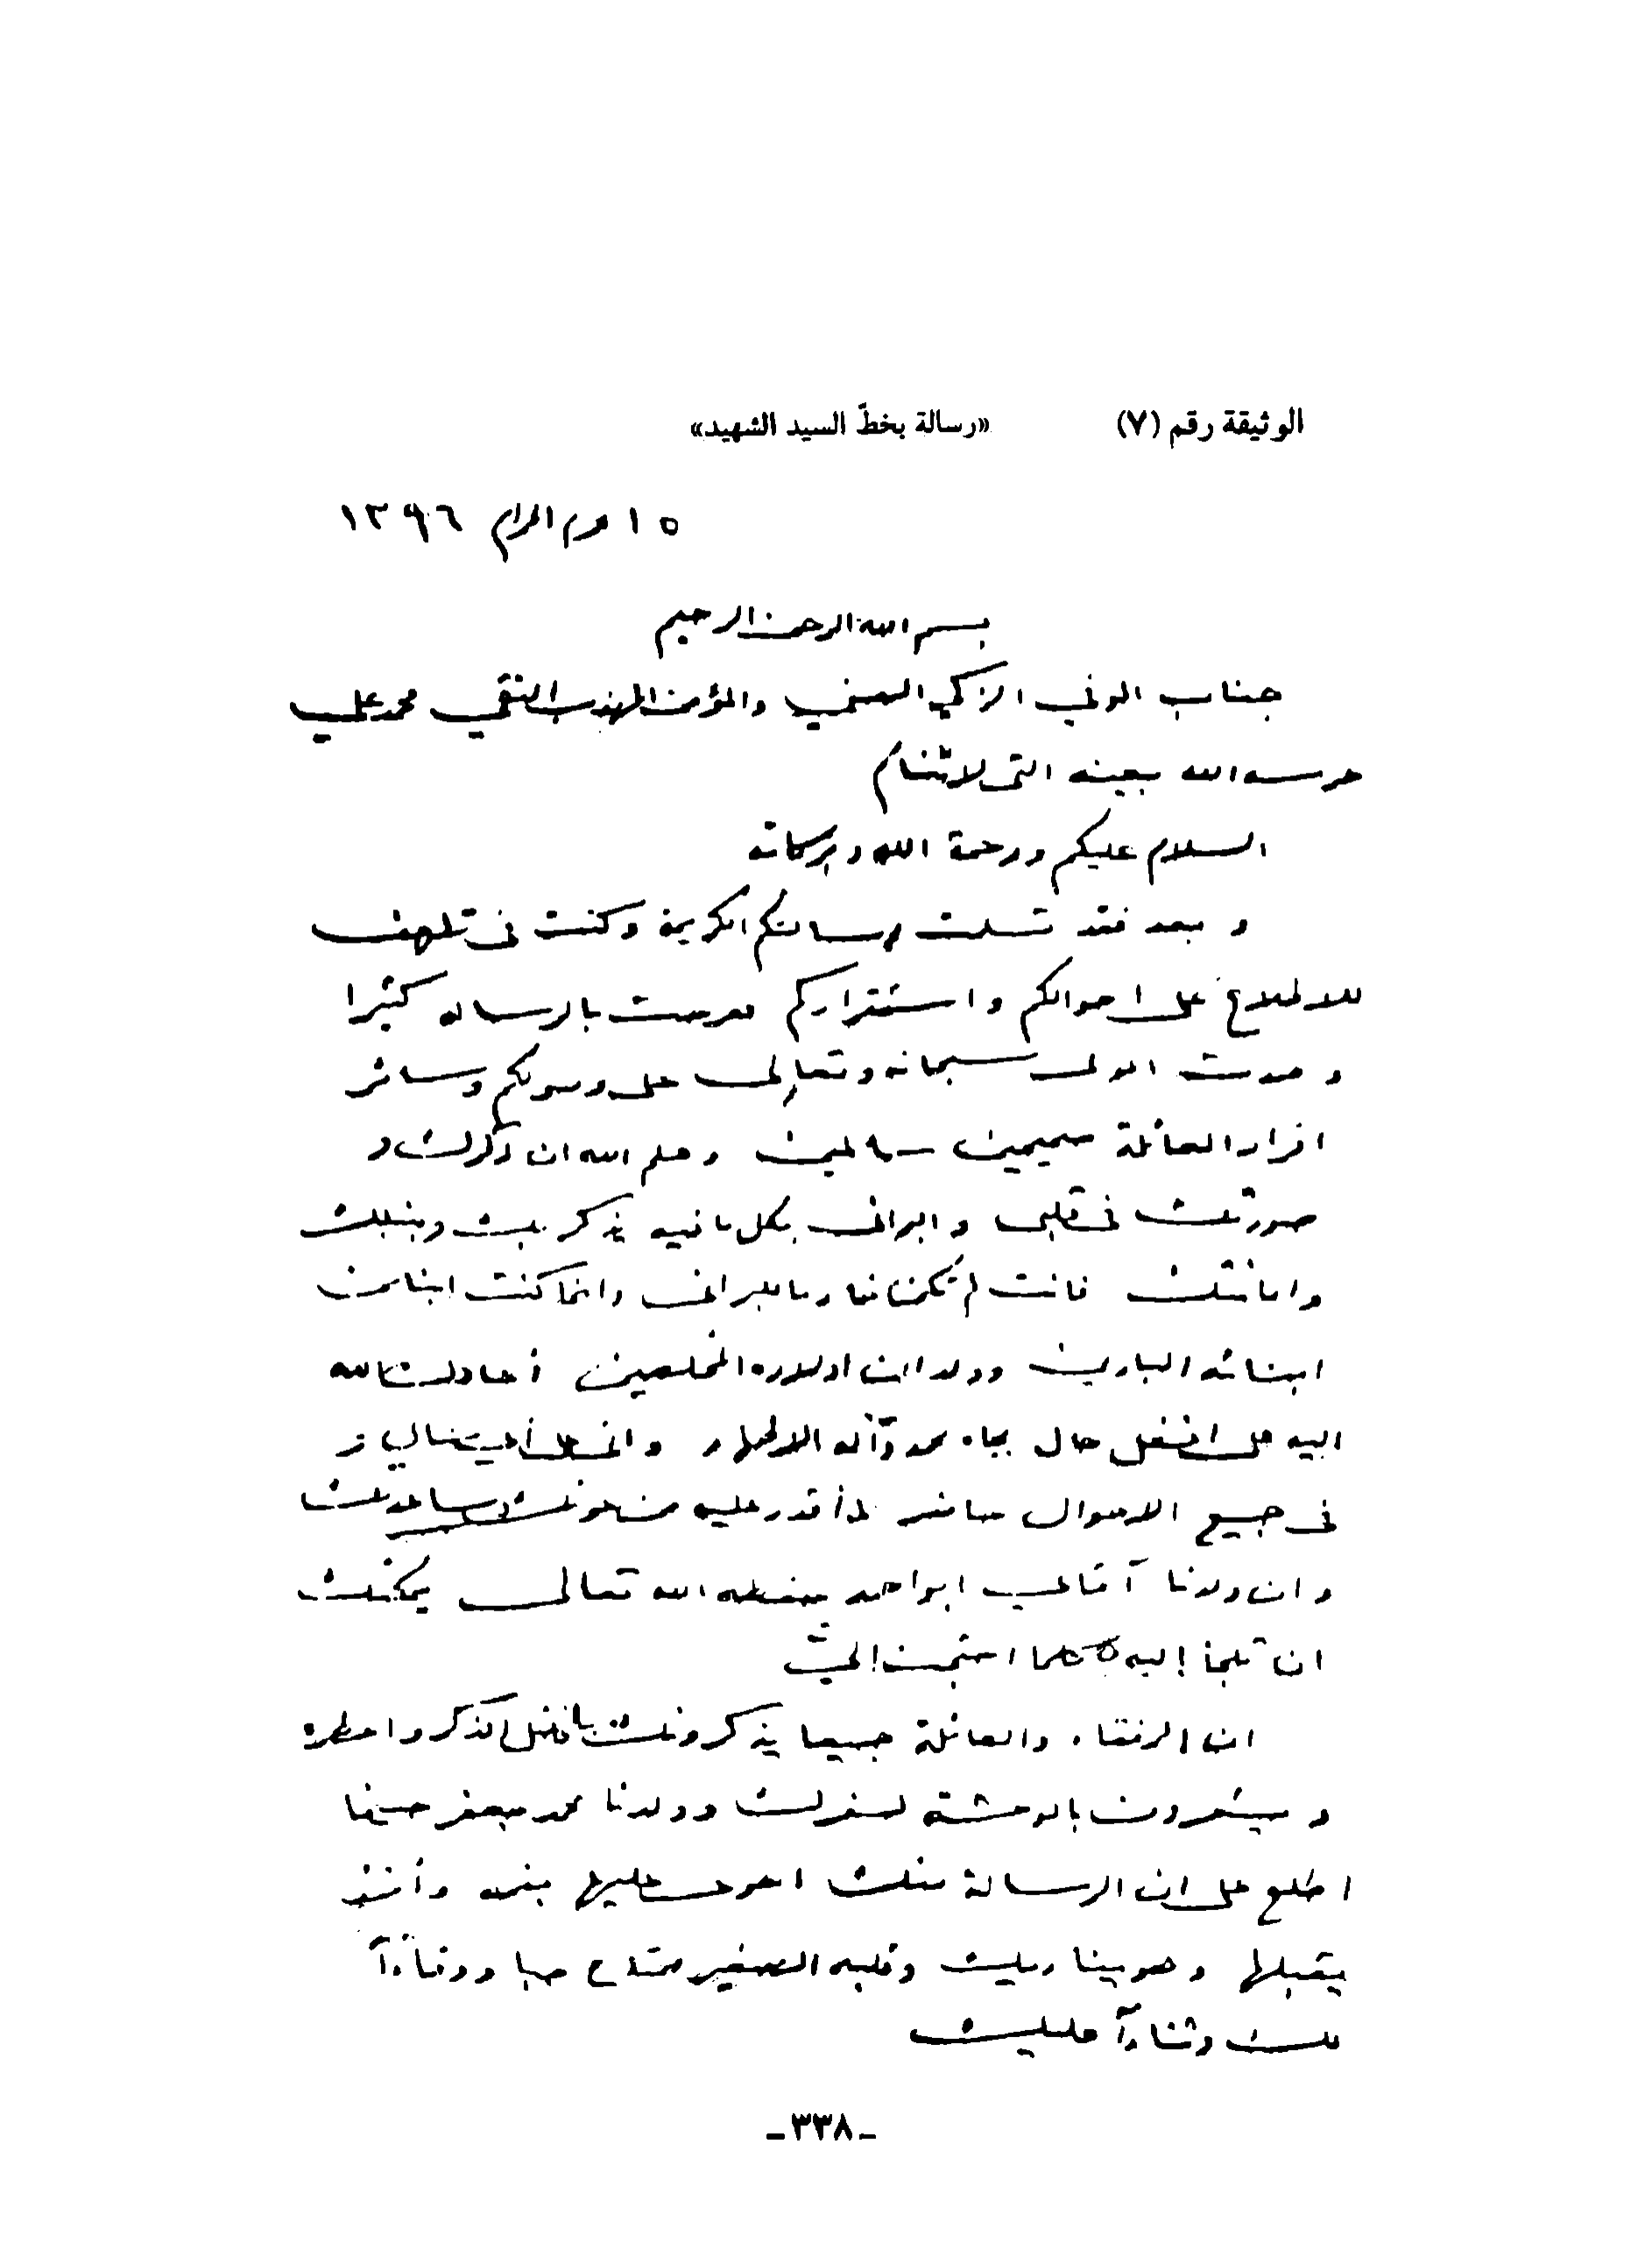 الوثيقة رقم (٧) «رسالة بخطّ السيد الشهيد»
١٥ محرم الحرام ١٣٩٦
بسم الله الرحمن الرحيم
جناب الوفي الزكي الصفي والمؤمن المهذب النقي محمد علي
حرسه الله بعينه التي لا تنام
السلام عليكم ورحمة الله وبركاته
وبعد فقد تسلمت رسالتكم الكريمة وكنت في تلهف
للاطلاع على احوالكم واستقراركم ففرحت بالرسالة كثيرا
وحمدت المولى سبحانه وتعالى على وصولكم وسائر
افراد العائلة صحيحين سالمين وعلم الله ان ذكراك و
صورتك في قلبي والبراني بكل ما فيه يذكر بك وبنبلك
وامانتك فانت لم تكن خادما للبراني وانما كنت ابنا من
ابنائه البارين وولدا من اولاده المخلصين أعادك الله
اليه على افضل حال بجاه محمد وآله الاطهار واني على
في جميع الاحوال حاضر لما أقدر عليه من عونك ومساعدتك
وان ولدنا آقاي ابو احمد حفظه الله تعالى يمكنك
ان تلجأ إليه كلما احتجت إلي
ان الرفقاء والعائلة جميعا يذكرونك بافضل الذكر واعطره
ويشعرون بالوحشة لسفرك وولدنا محمد جعفر حينما
اطلع على ان الرسالة منك اهوى عليها بفمه وأخذ
يقبلها وهو ينادیك وقلبه الصغير حبا ووفاءاً
لك وثناءاً عليك
-٣٣٨-